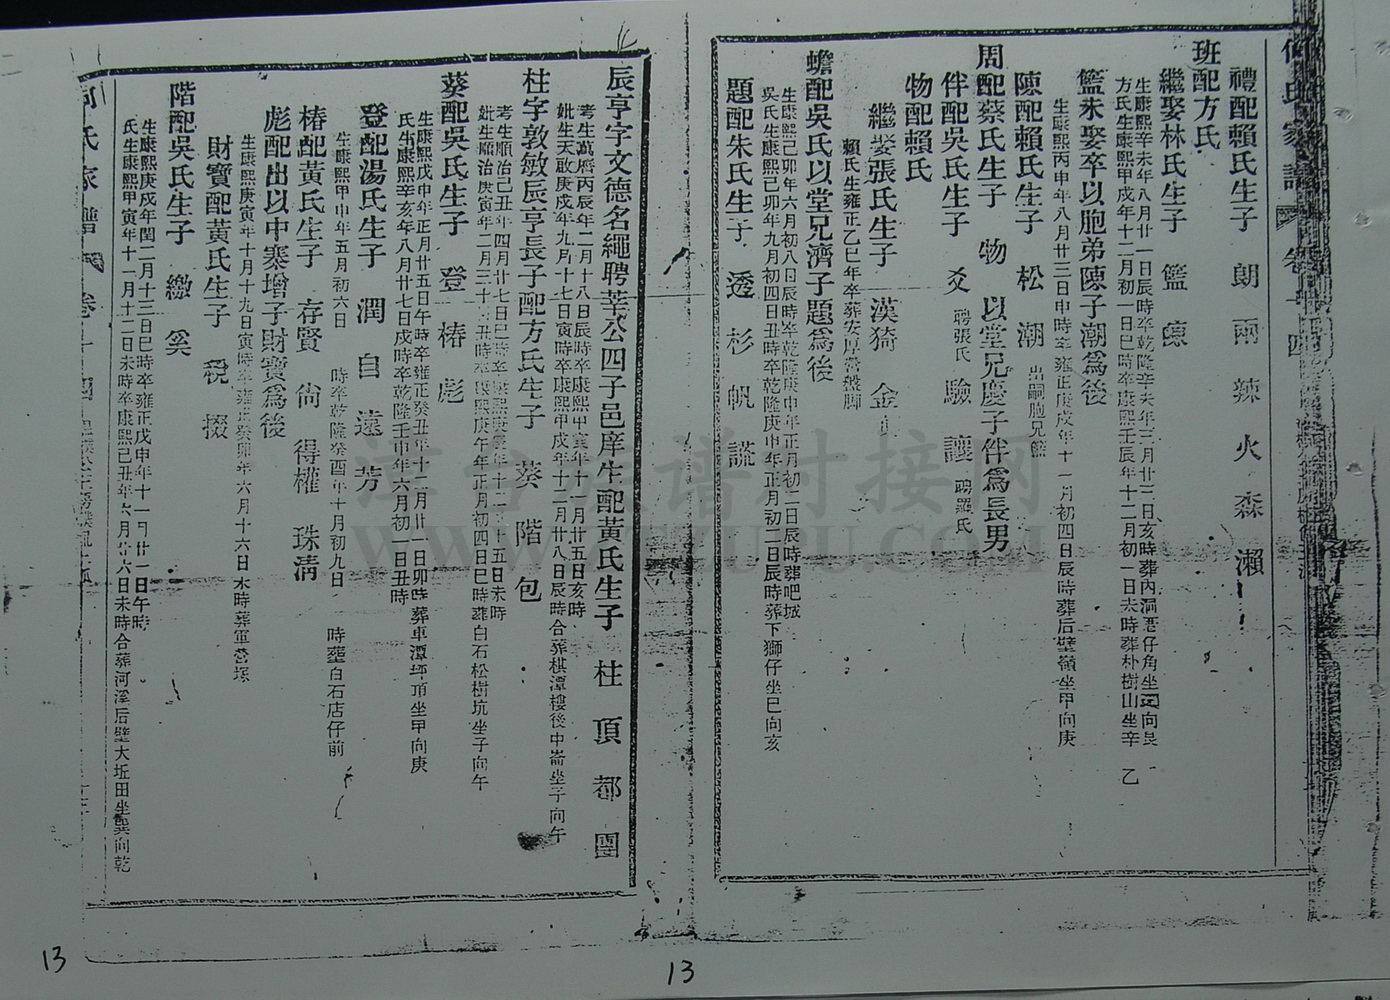 何氏家譜 卷十四
禮配賴氏生子 朗 兩 辣 火 森 瀨
班配方氏
繼娶林氏生子 籃 陳
生康熙辛未年八月廿一日辰時卒乾隆辛未年三月廿三日亥時葬內洞
方氏生康熙甲戌年十二月初一日巳時卒康熙壬辰年十二月初一日未時葬朴樹山坐辛 乙
籃未娶卒以胞弟陳子潮為後
生康熙丙申年八月廿三日申時卒雍正庚戌年十一月初四日辰時葬后壁嶺坐甲向庚
陳配賴氏生子 松 潮 出嗣胞兄籃
周配蔡氏生子 物 以堂兄慶子伴為長男
伴配吳氏生子 爻 聘張氏 驗 讓 聘羅氏
物配賴氏
繼娶張氏生子 漢猗 金
賴氏生雍正乙巳年卒葬安厚營盤脚
蟾配吳氏以堂兄濟子題為後
生康熙己卯年六月初八日辰時卒乾隆庚申年正月初二日辰時葬吧城
吳氏生康熙己卯年九月初四日丑時卒乾隆庚申年正月初二日辰時葬下獅仔坐巳向亥
題配朱氏生子 透 杉 帆 謊
辰亨字文德名繩聘莘公四子邑庠生配黃氏生子 柱 頂 都 團
考生萬曆丙辰年二月十八日辰時卒康熙甲寅年十一月廿五日亥時
妣生天啟庚戌年九月十七日寅時卒康熙甲戌年十二月廿八日辰時合葬棋潭樓後中崙坐子向午
柱字敦敏辰亨長子配方氏生子 葵 階 包
考生順治己丑年四月廿七日巳時卒康熙庚寅年十二月十五日未時
妣生順治庚寅年二月三十日丑時卒康熙庚午年正月初四日巳時葬白石松樹坑坐子向午
葵配吳氏生子 登 椿 彪
生康熙戊申年正月廿五日午時卒雍正癸丑年十二月廿一日卯時葬車潭坪頂坐甲向庚
氏生康熙辛亥年八月廿七日戌時卒乾隆壬申年六月初一日丑時
登配湯氏生子 潤 自 遠 芳
生康熙甲申年五月初六日 時卒乾隆癸酉年十月初九日 時塟白石店仔前
椿配黃氏生子 存賢 尚 得權 珠清
彪配出以中寨增子財寶為後
生康熙庚寅年十月十九日寅時卒雍正癸卯年六月十六日未時葬軍營塚
財寶配黃氏生子 稅 掇
階配吳氏生子 繳 奚
生康熙庚戌年閏二月十三日巳時卒雍正戊申年十一月廿一日午時
氏生康熙甲寅年十一月十二日未時卒康熙己丑年六月廿六日未時合葬河溪后壁大坵田坐巽向乾
何氏家譜 卷十四
13
13